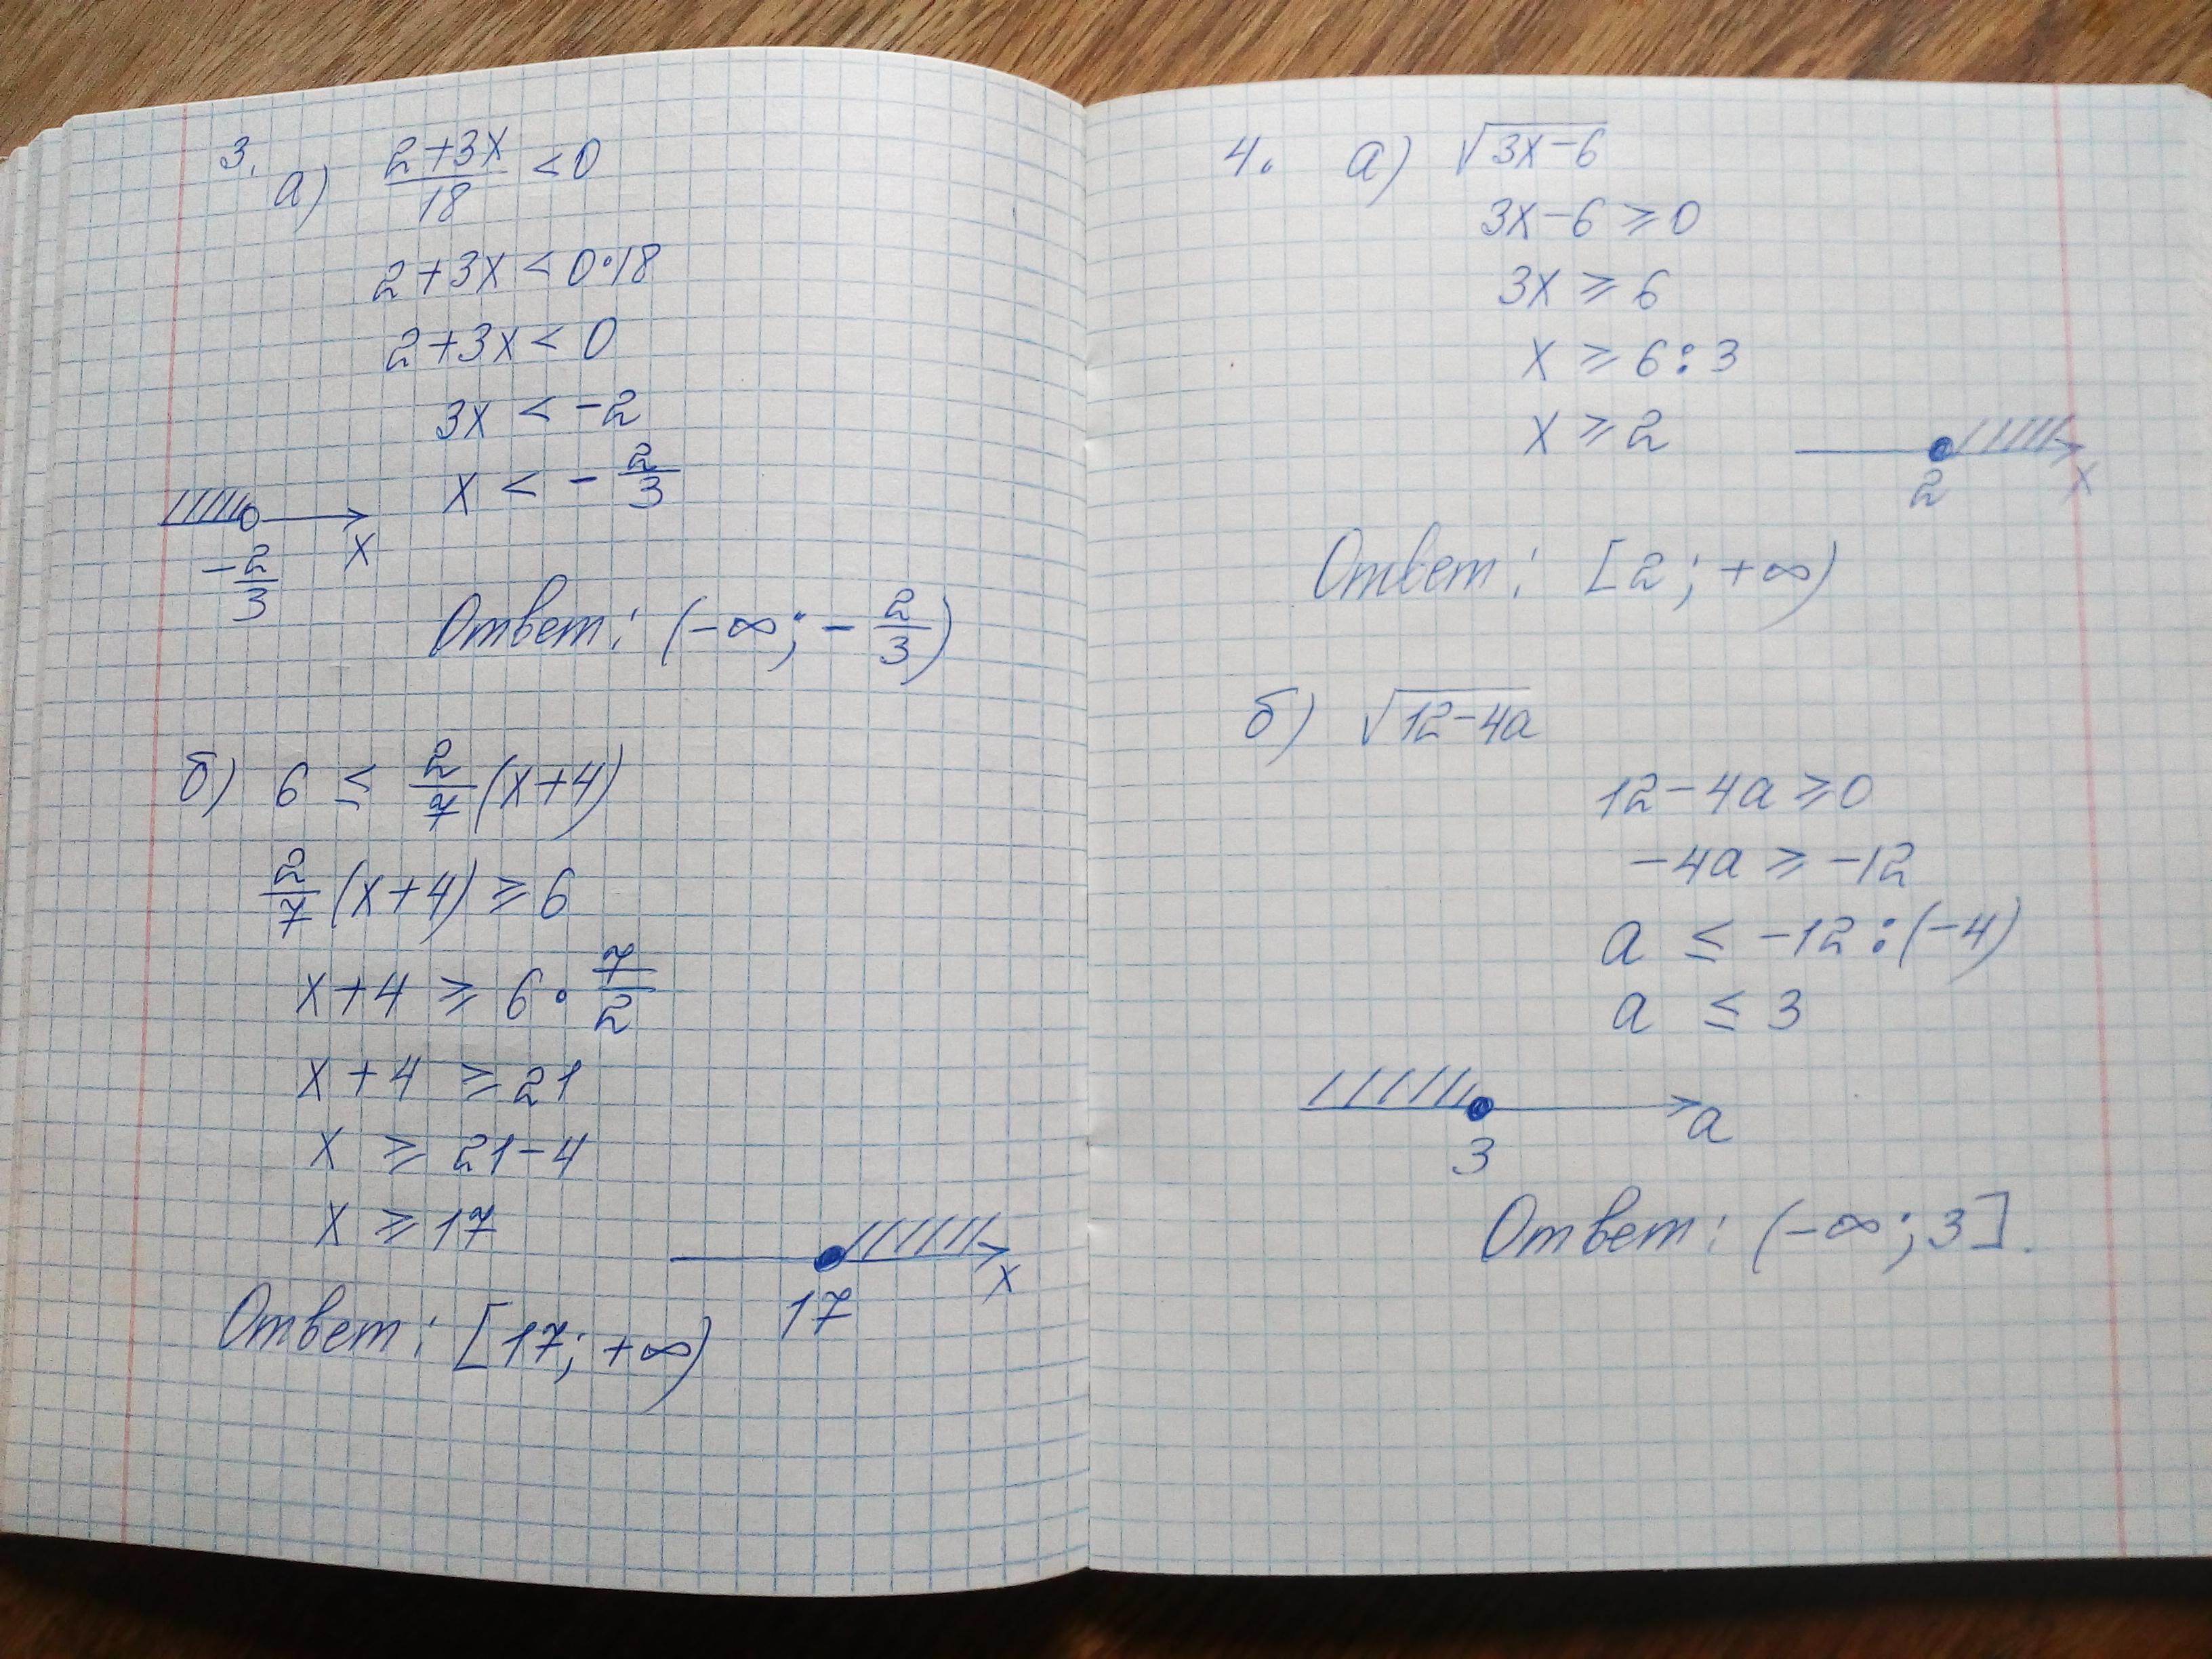 3. а) (2+3x)/18 < 0
2+3x < 0·18
2+3x < 0
3x < -2
x < -2/3
-2/3 x
Ответ: (-∞; -2/3)
б) 6 ≤ 2/7 (x+4)
2/7 (x+4) ≥ 6
x+4 ≥ 6 · 7/2
x+4 ≥ 21
x ≥ 21-4
x ≥ 17
17 x
Ответ: [17; +∞)
4. а) √(3x-6)
3x-6 ≥ 0
3x ≥ 6
x ≥ 6:3
x ≥ 2
2 x
Ответ: [2; +∞)
б) √(12-4a)
12-4a ≥ 0
-4a ≥ -12
a ≤ -12:(-4)
a ≤ 3
3 a
Ответ: (-∞; 3].